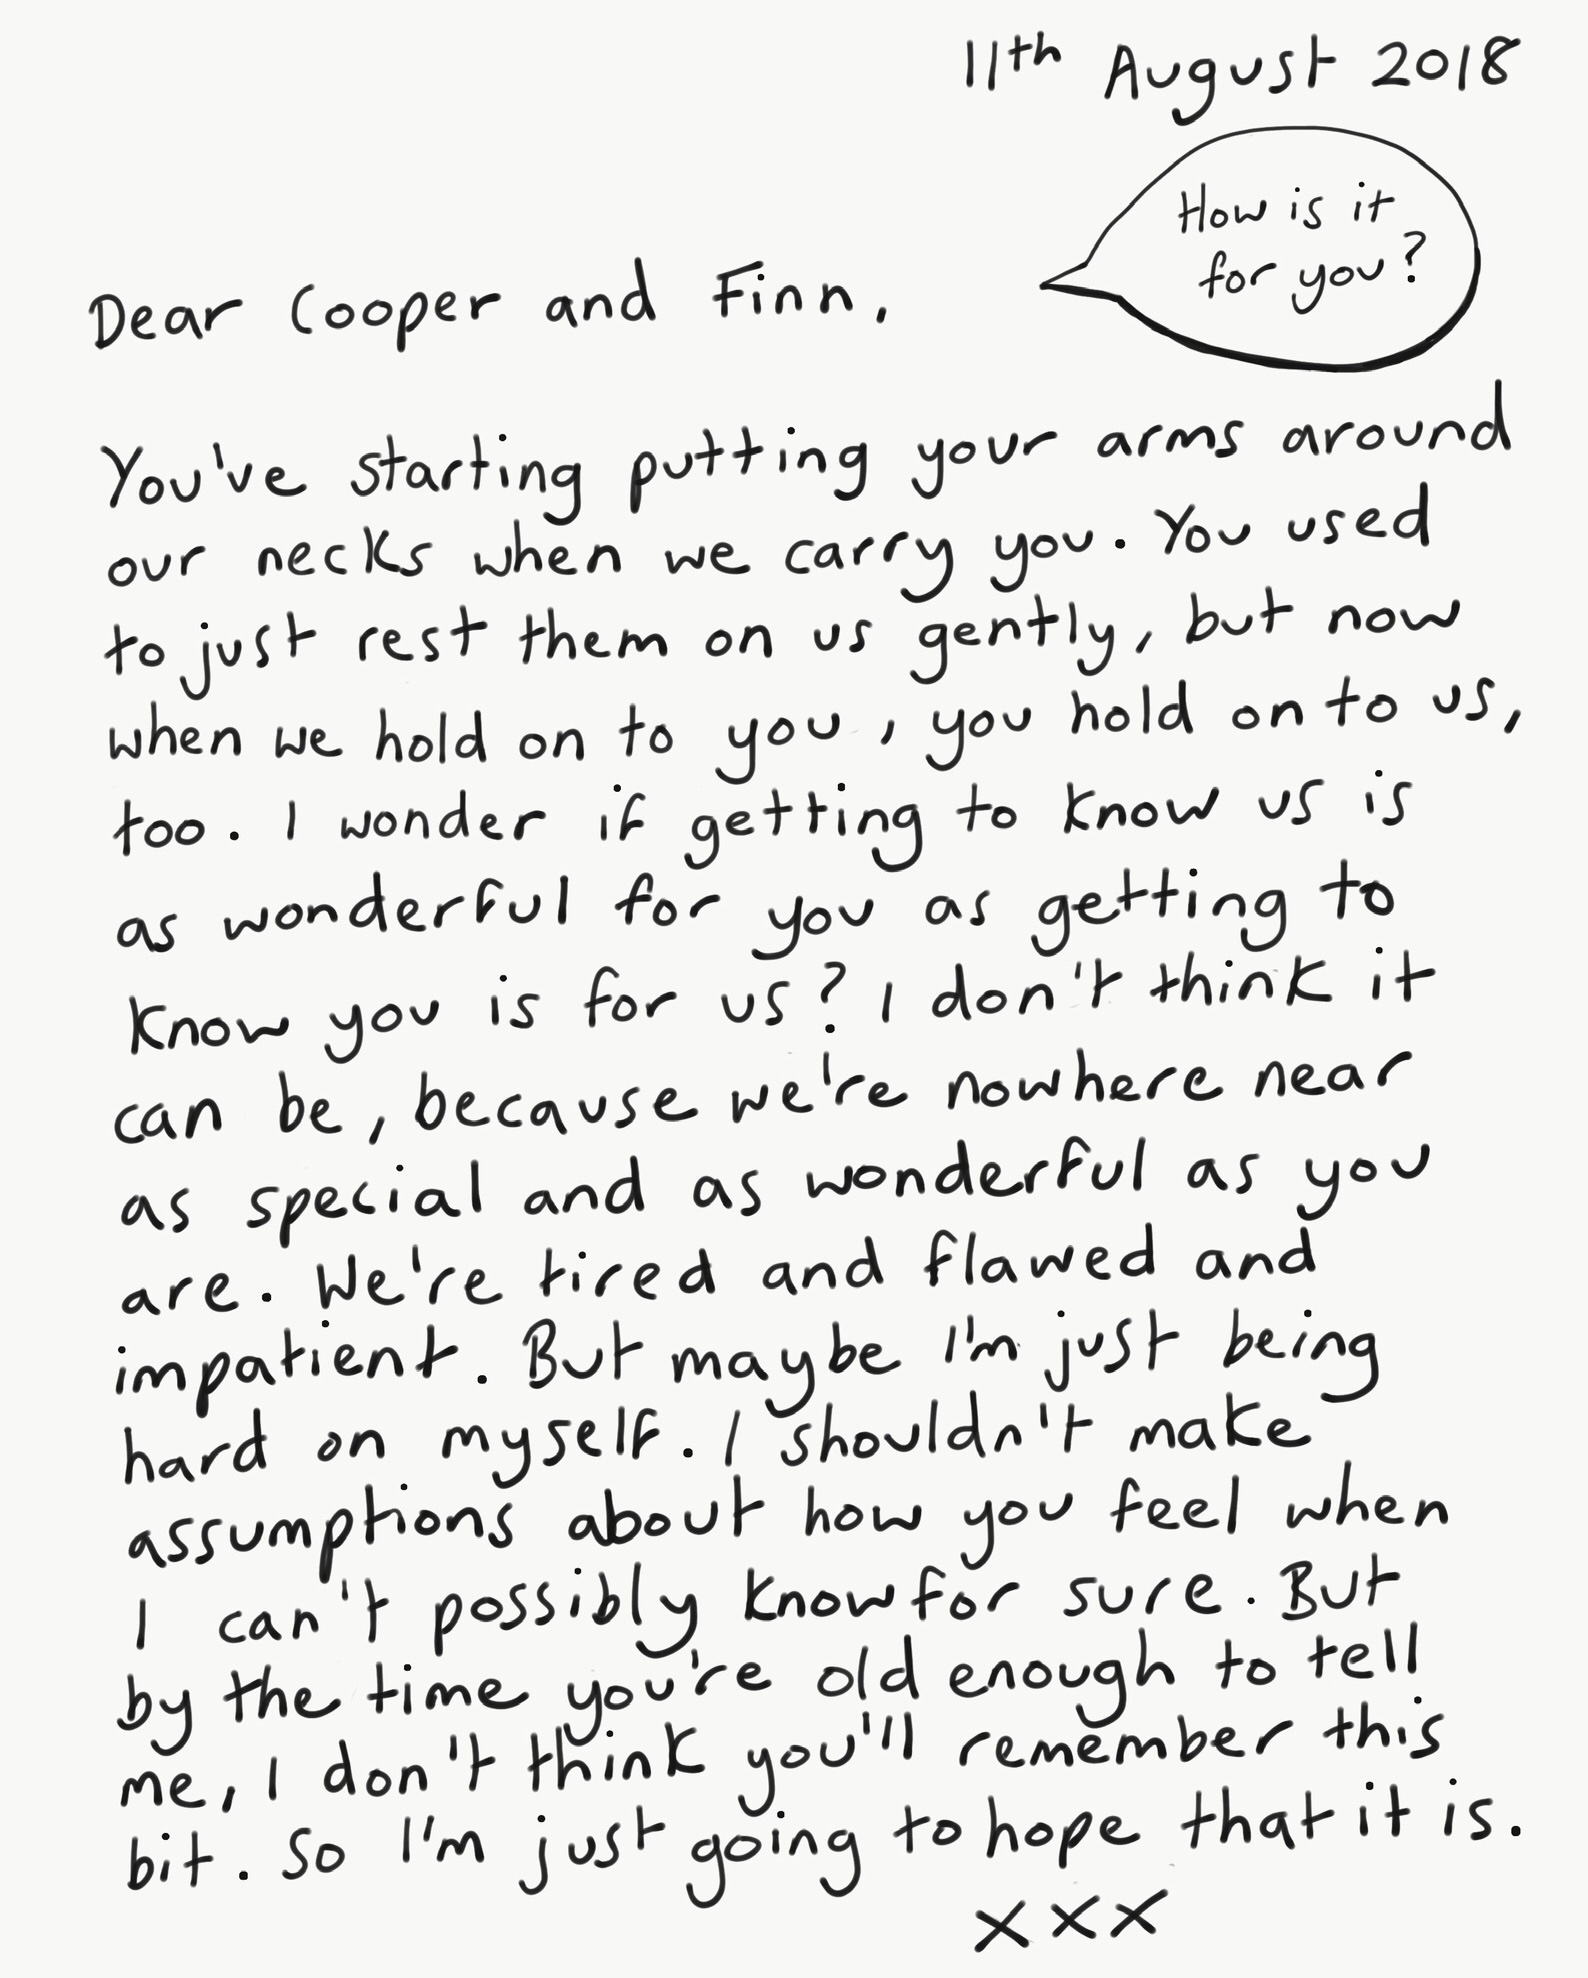 11th August 2018
How is it
for you?
Dear Cooper and Finn,
You've starting putting your arms around
our necks when we carry you. You used
to just rest them on us gently, but now
when we hold on to you, you hold on to us,
too. I wonder if getting to know us is
as wonderful for you as getting to
know you is for us? I don't think it
can be, because we're nowhere near
as special and as wonderful as you
are. We're tired and flawed and
impatient. But maybe I'm just being
hard on myself. I shouldn't make
assumptions about how you feel when
I can't possibly know for sure. But
by the time you're old enough to tell
me, I don't think you'll remember this
bit. So I'm just going to hope that it is.
xxx